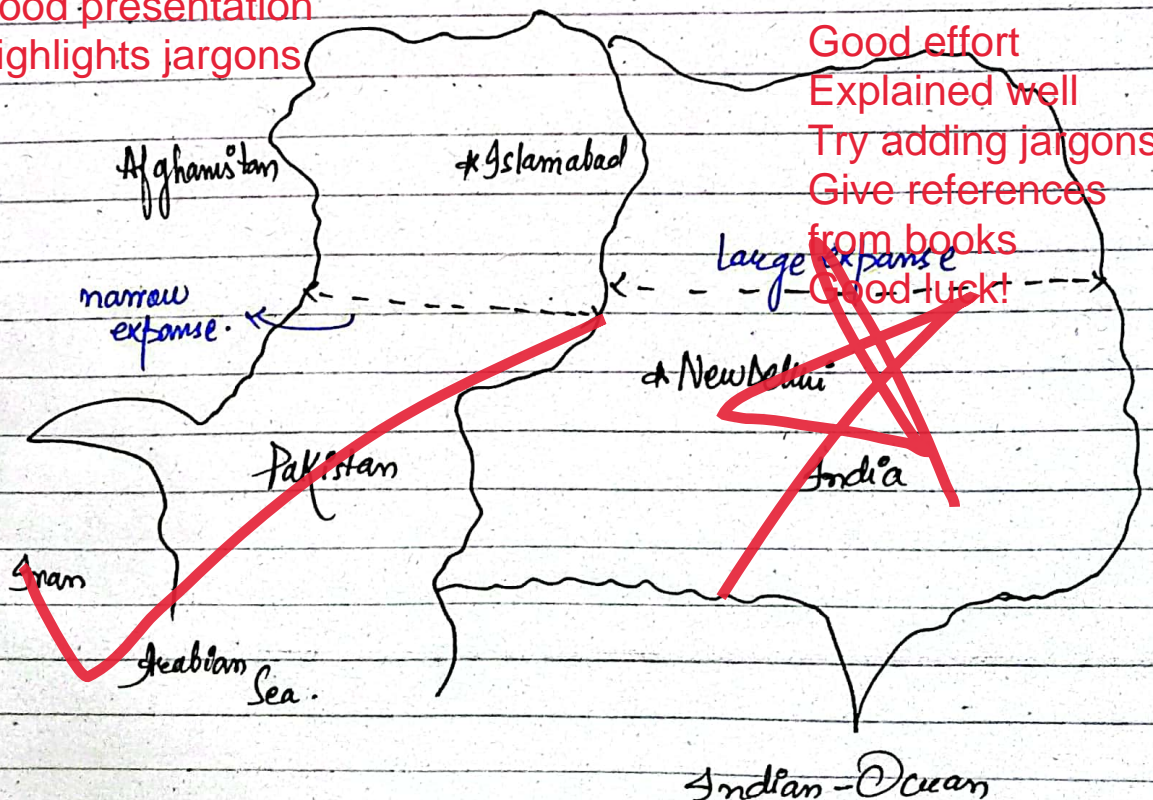 ood presentation
ighlights jargons
Good effort
Explained well
Try adding jargons
Give references
from books
Good luck!
Afghanistan
*Islamabad
Large expanse
narrow
expanse.
*New Delhi
Pakistan
India
Iran
Arabian
Sea.
Indian-Ocean